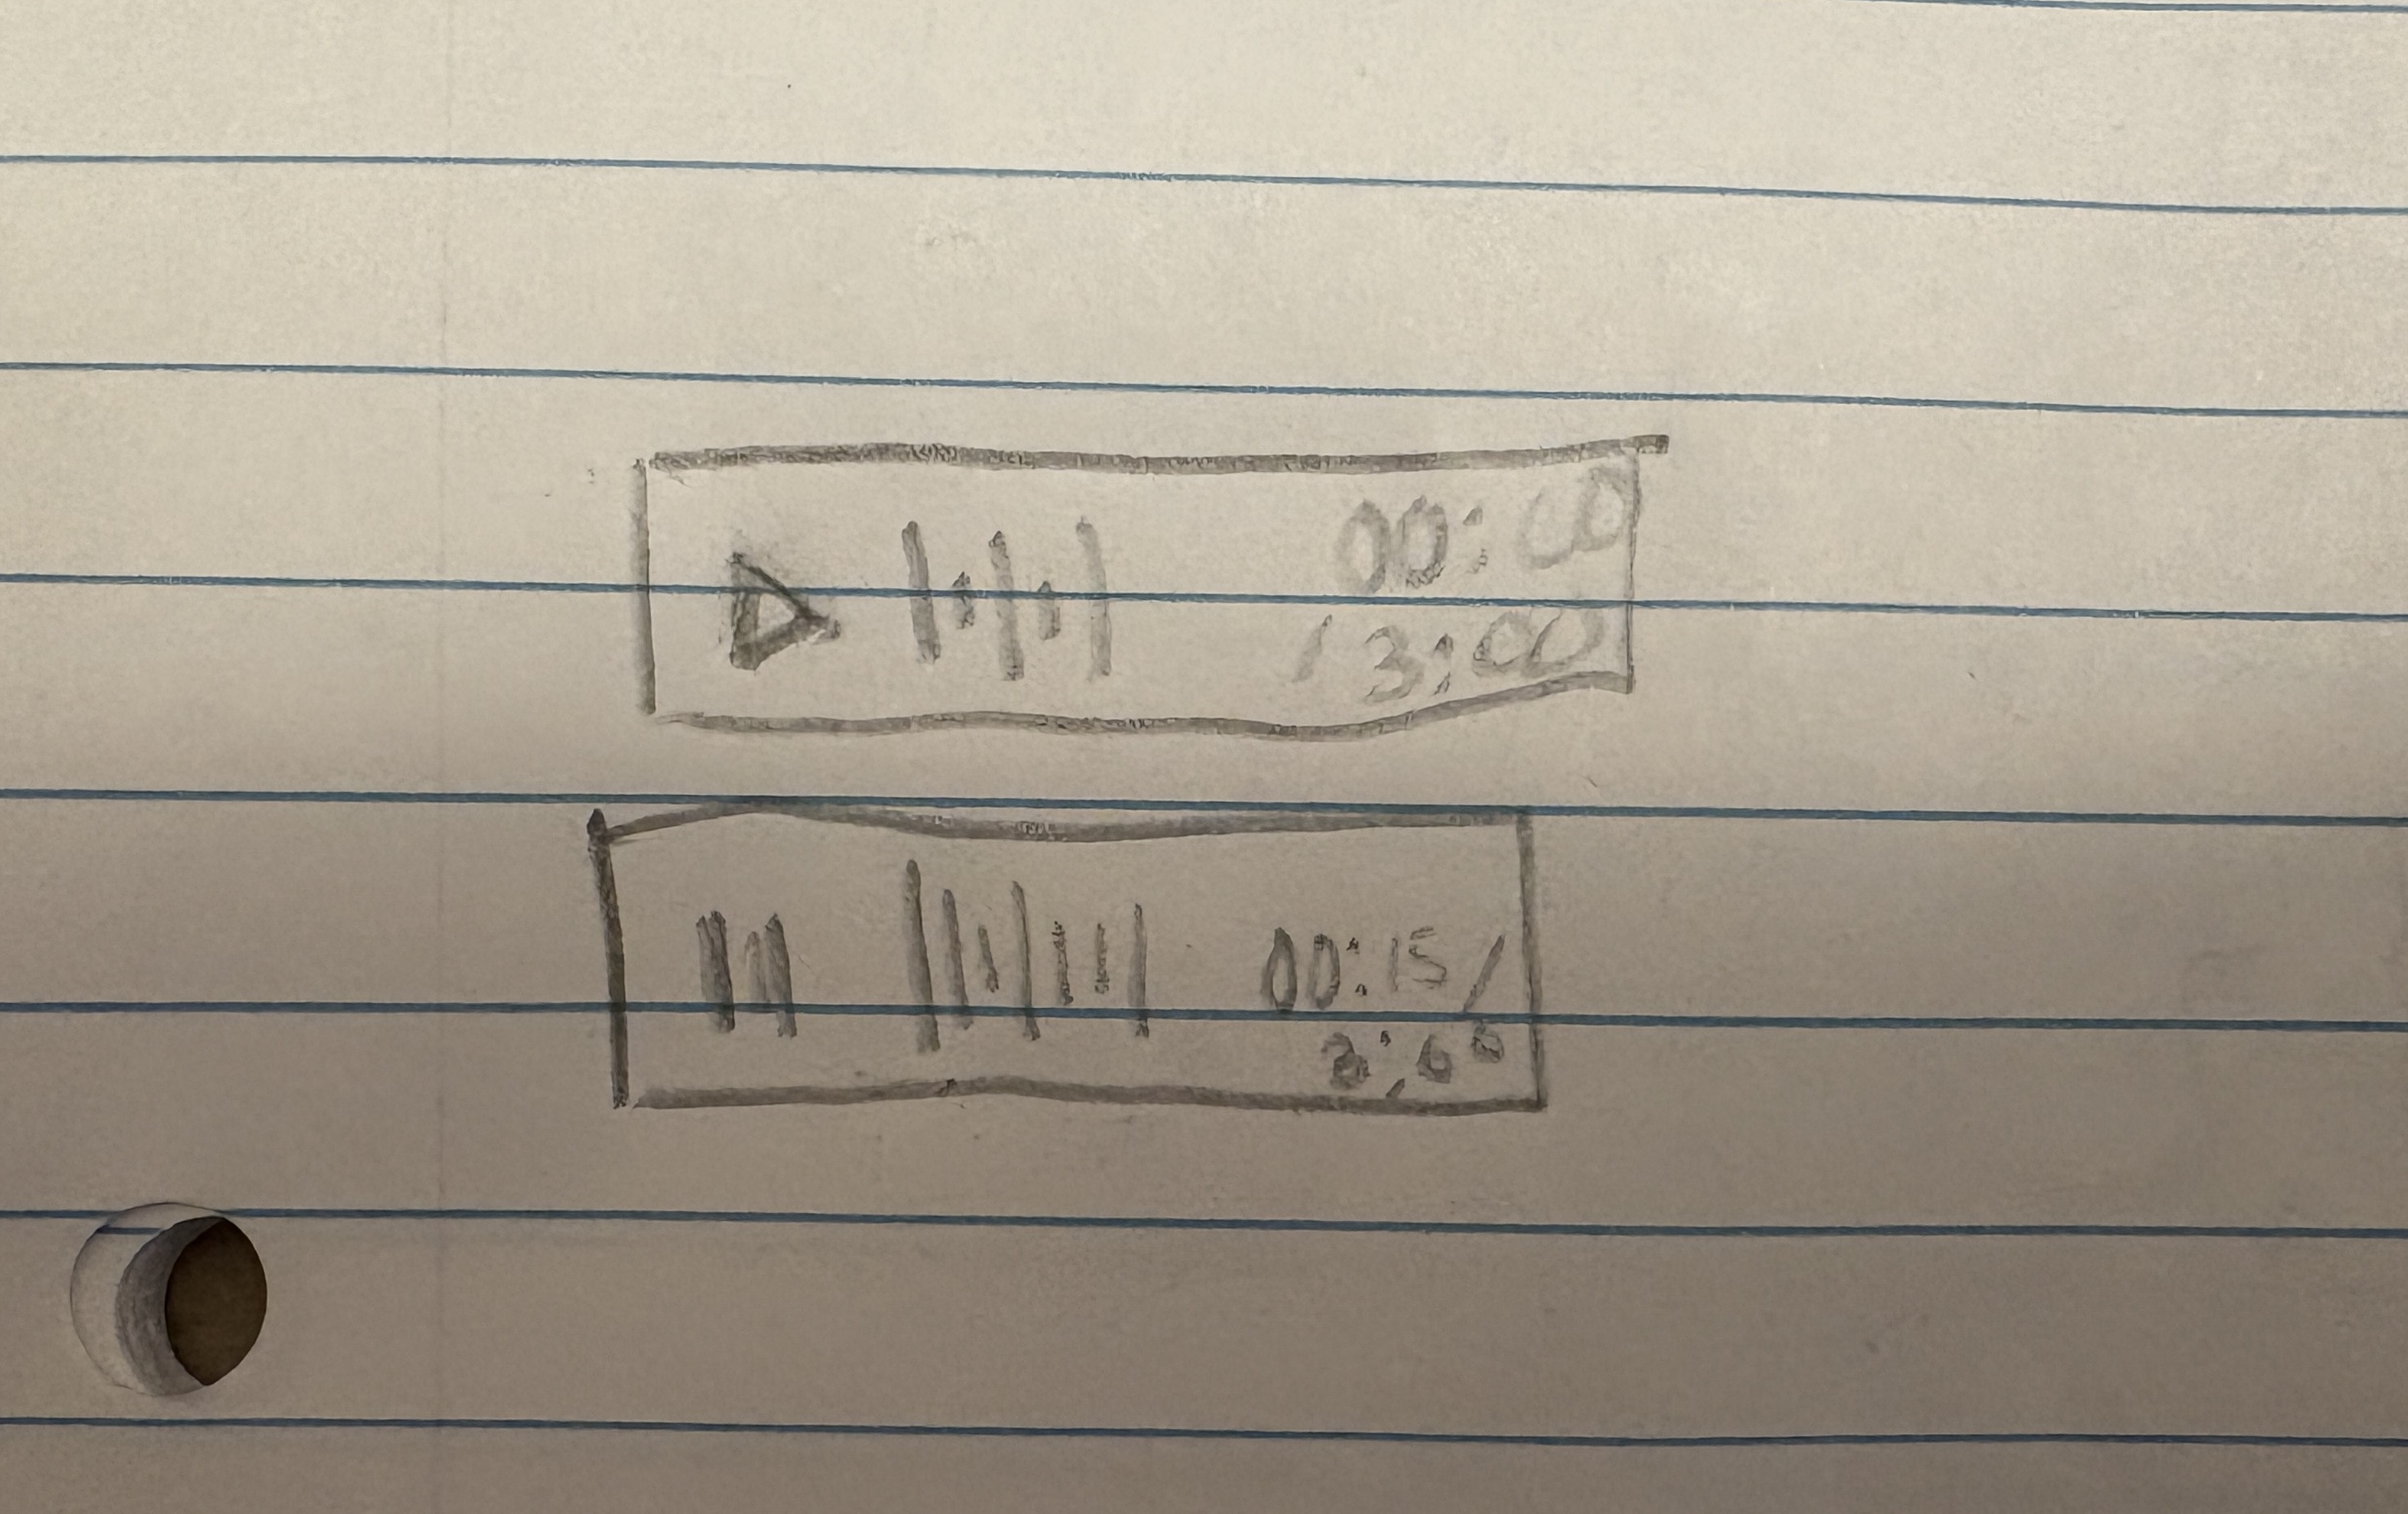 00:00
/ 3:00
00:15 /
3:00